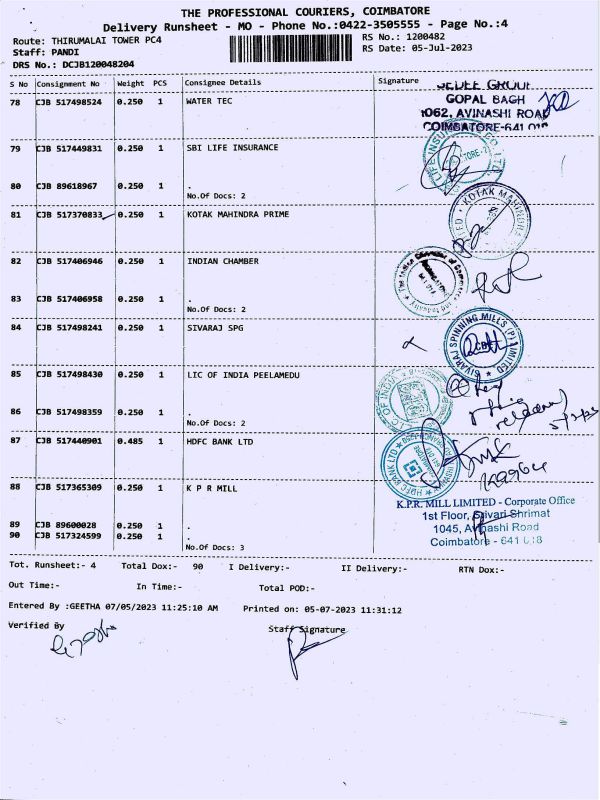 THE PROFESSIONAL COURIERS, COIMBATORE
Delivery Runsheet - MO - Phone No.:0422-3505555 - Page No.:4
Route: THIRUMALAI TOWER PC4 RS No.: 1200482
Staff: PANDI RS Date: 05-Jul-2023
DRS No.: DCJB120048204
S No Consignment No Weight PCS Consignee Details Signature
78 CJB 517498524 0.250 1 WATER TEC
GOPAL BAGH
1062, AVINASHI ROAD
COIMBATORE-641 018
79 CJB 517449831 0.250 1 SBI LIFE INSURANCE
80 CJB 89618967 0.250 1 .
No.Of Docs: 2
81 CJB 517370833 0.250 1 KOTAK MAHINDRA PRIME
KOTAK MAHINDRA
82 CJB 517406946 0.250 1 INDIAN CHAMBER
The Indian Chamber of Commerce and Industry
83 CJB 517406958 0.250 1 .
No.Of Docs: 2
84 CJB 517498241 0.250 1 SIVARAJ SPG
SIVARAJ SPINNING MILLS (P) LIMITED
85 CJB 517498430 0.250 1 LIC OF INDIA PEELAMEDU
86 CJB 517498359 0.250 1 .
No.Of Docs: 2
87 CJB 517440901 0.485 1 HDFC BANK LTD
HDFC BANK LTD
88 CJB 517365309 0.250 1 K P R MILL
K.P.R. MILL LIMITED - Corporate Office
1st Floor, Srivari Shrimat
1045, Avinashi Road
Coimbatore - 641 018
89 CJB 89600028 0.250 1 .
90 CJB 517324599 0.250 1
No.Of Docs: 3
Tot. Runsheet:- 4 Total Dox:- 90 I Delivery:- II Delivery:- RTN Dox:-
Out Time:- In Time:- Total POD:-
Entered By :GEETHA 07/05/2023 11:25:10 AM Printed on: 05-07-2023 11:31:12
Verified By Staff Signature